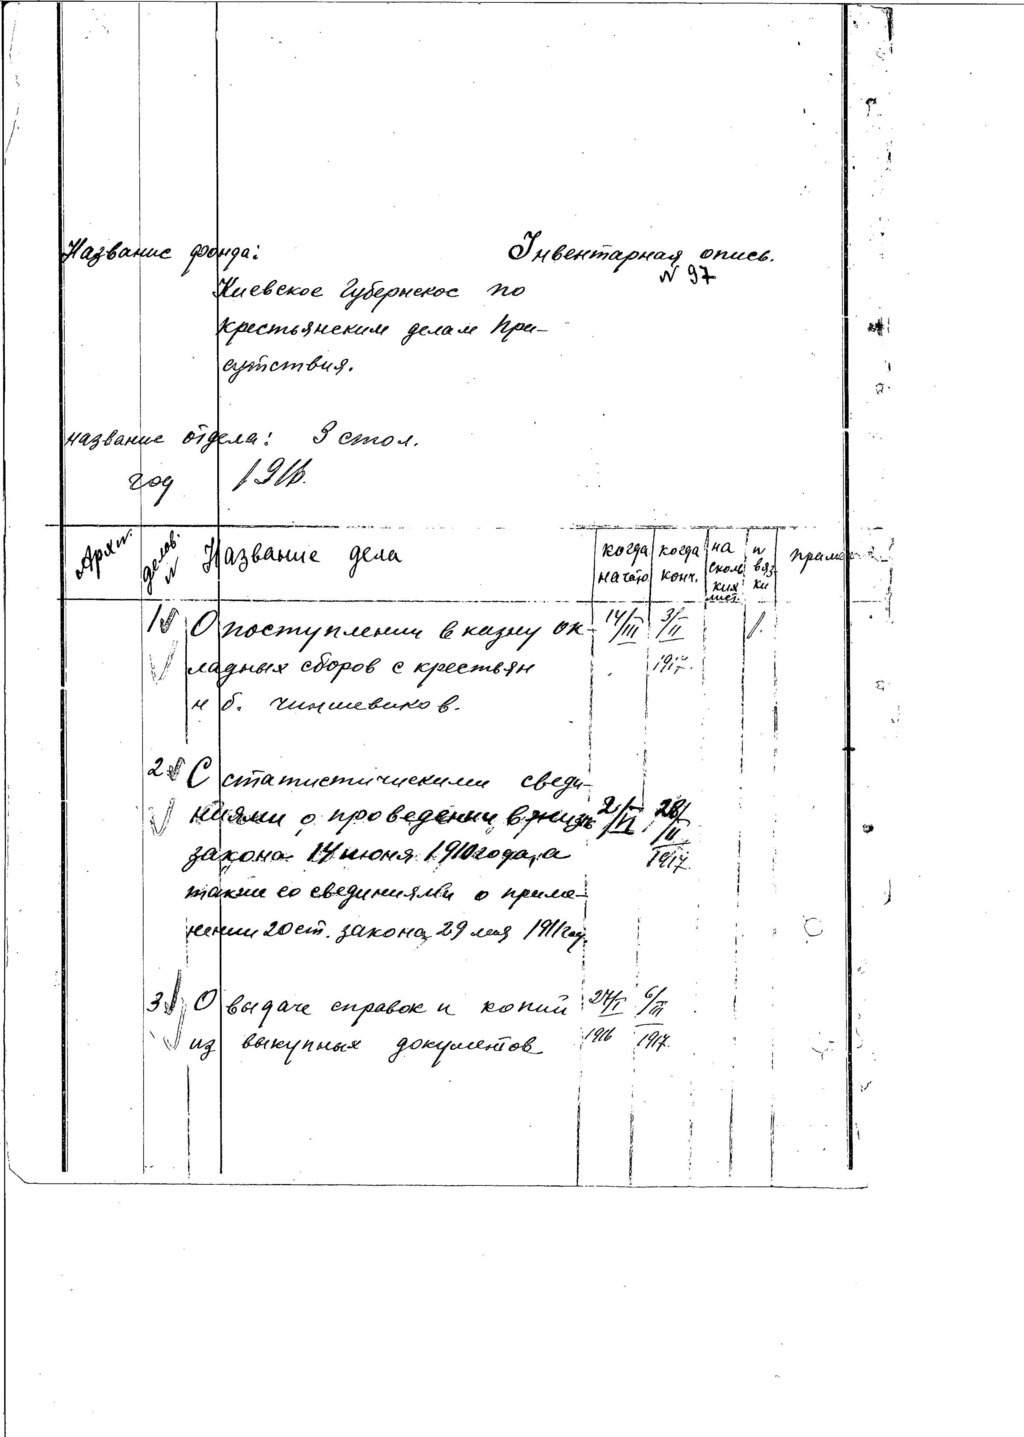 Название фонда: Інвентарная опись.
N 97
Киевское Губернское по
крестьянским делам При-
сутствия.
название отдела: 3 стол.
год 1916.
Архив. делов. N Название дела когда начато когда конч. на сколь ких лист. N вяз ки приме
1 О поступлении в казну ок- 14/III 3/II 1.
ладных сборов с крестьян 1917.
и б. чиншевиков.
2 С статистическими сведи-
ниями о проведении в жизнь 2/VI 28/II
закона 14 июня 1910 года, а 1917
также со свединиями о приме-
нении 20 ст. закона 29 мая 1911 год.
3 О выдаче справок и копий 27/I 6/III
из выкупных документов 1916 1917.